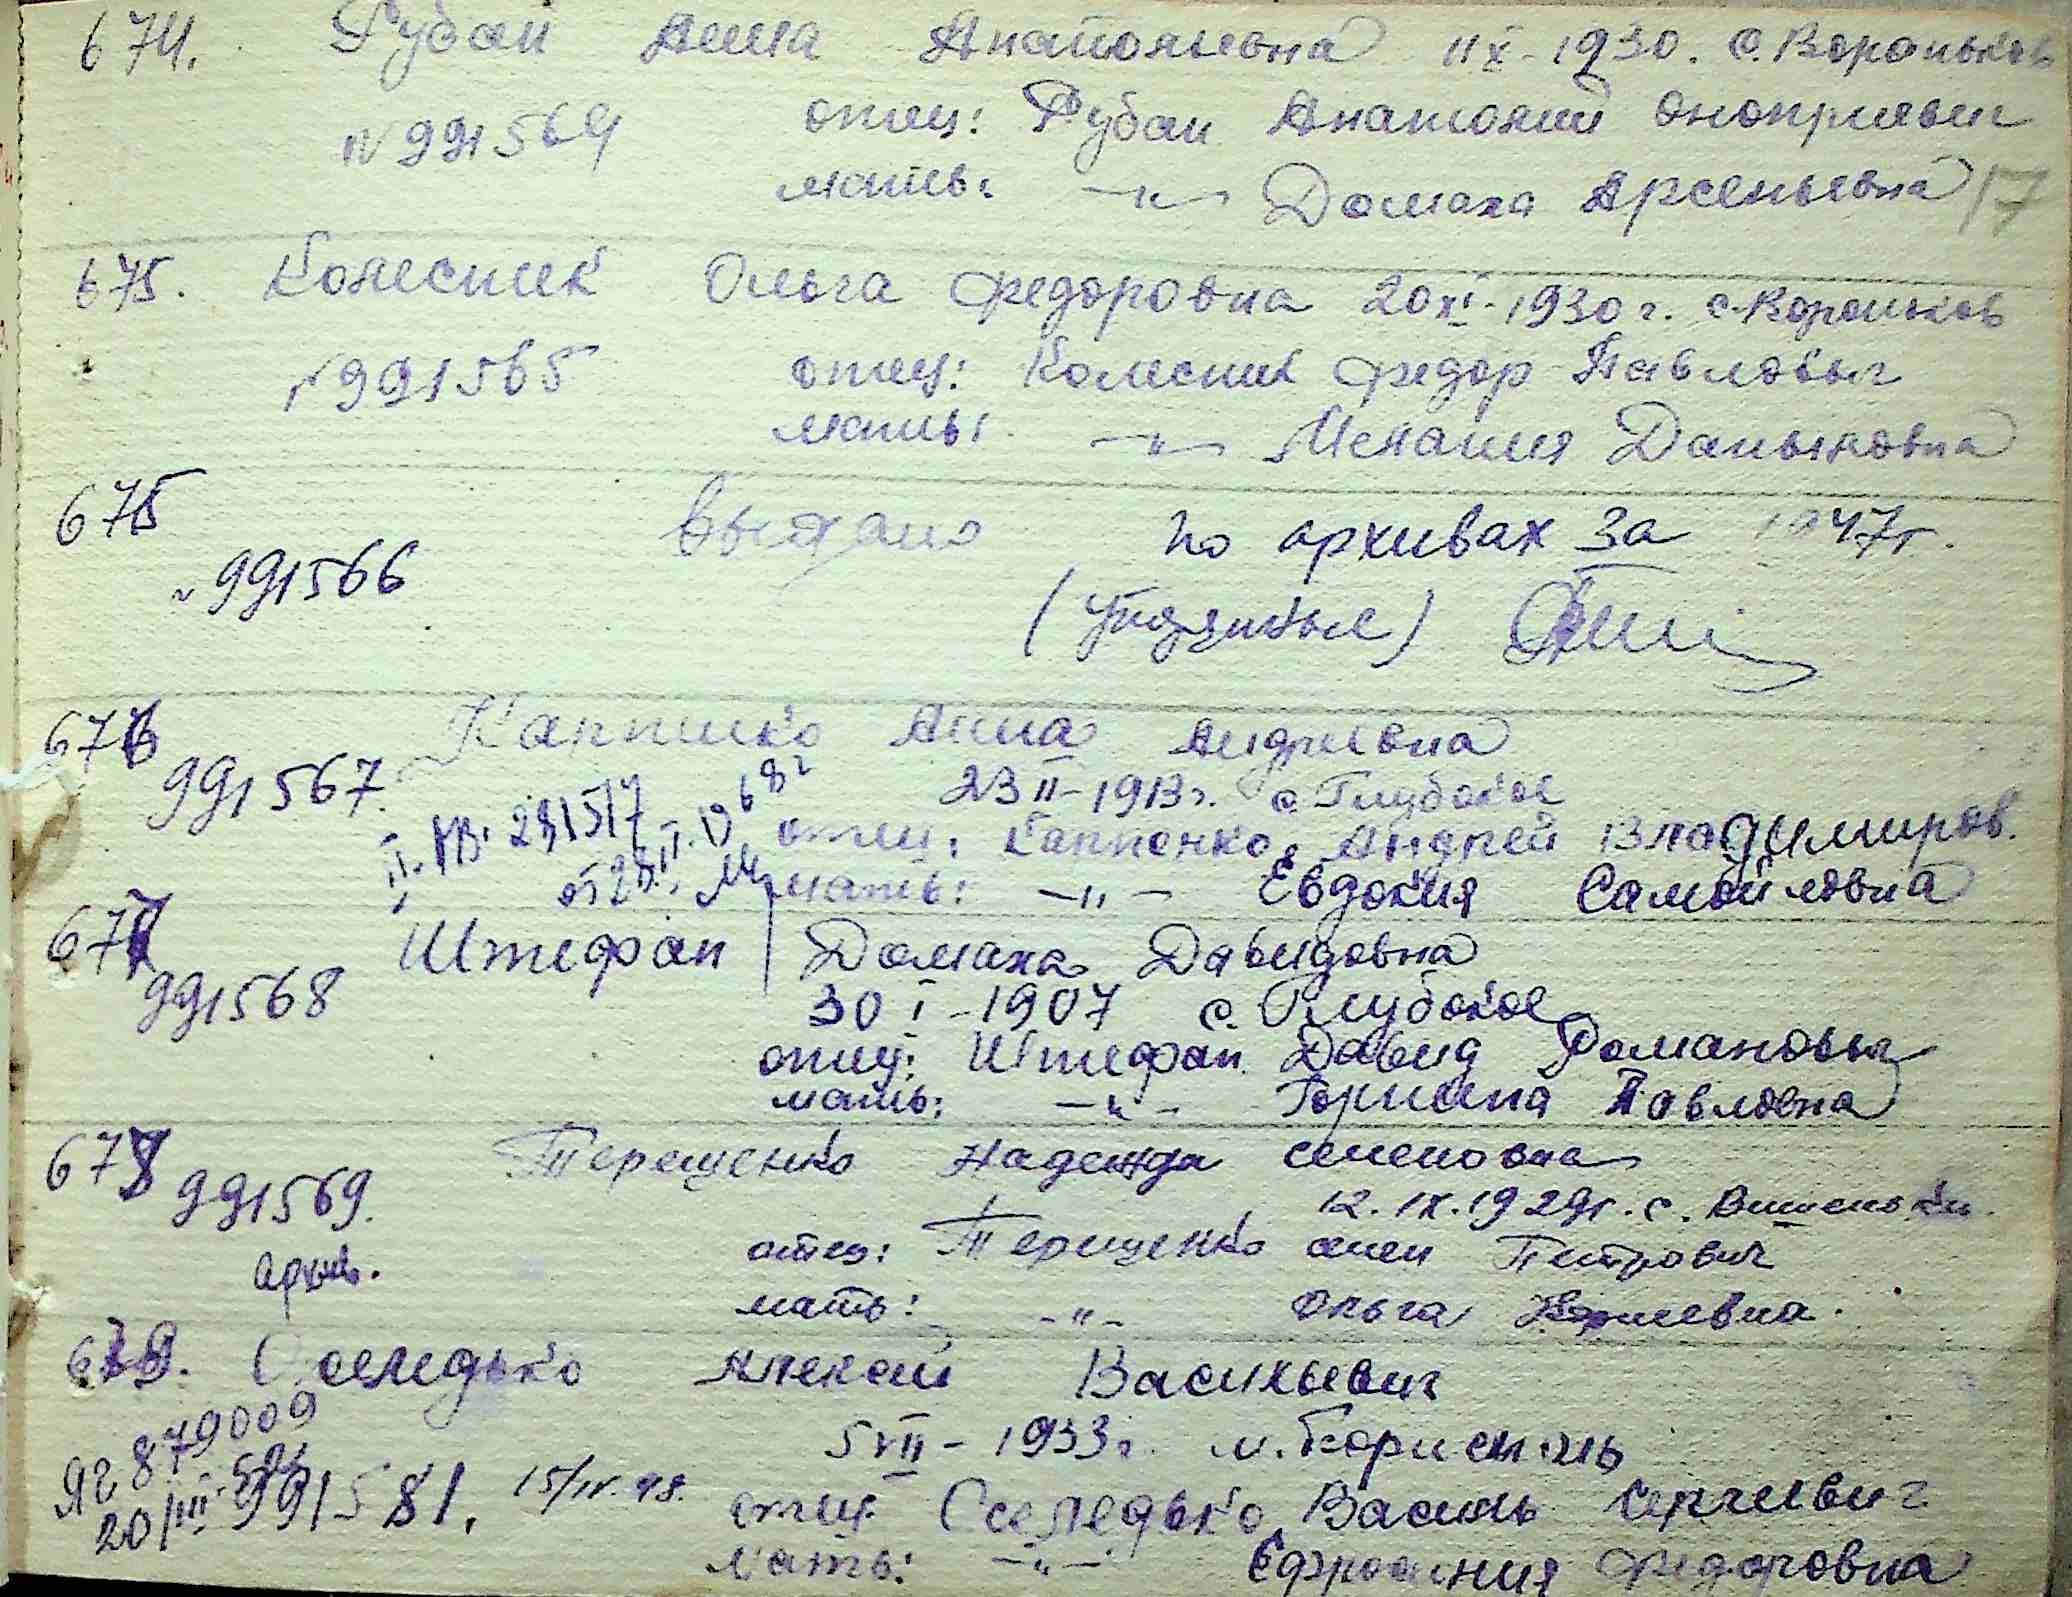 674. Рубан Анна Анатольевна 11 X - 1930. с. Вороньков
N 991564 отец: Рубан Анатолий Оноприевич
мать: —"— Домаха Арсеньевна 17
675. Колесник Ольга Федоровна 20 XI - 1930 г. с. Вороньков
N 991565 отец: Колесник Федор Павлович
мать: —"— Мелания Даниловна
675 по архивах за 1947г.
N 991566
676 Анна Андреевна
991567. 23 II - 1913 г. с. Глубокое
II. 231517 от 28.II.1968г
отец: Андрей Владимиров.
мать: —"— Евдокия Самойловна
677 Штефан Домаха Давидовна
991568 30 I - 1907 с. Глубокое
отец: Штефан Давид Романович
мать: —"— Павловна
678 Терещенко Надежда Семеновна
991569. 12. IX. 1929г. с. Вишеньки.
архив. отец: Терещенко Петрович
мать: —"— Ольга
679. Оселедько Алексей Васильевич
879009 5 VII - 1933 г. м. Бориспиль
20/III 991581. 15/IV 48. отец Оселедько Василь Сергиевич
мать: —"— Ефросиния Федоровна